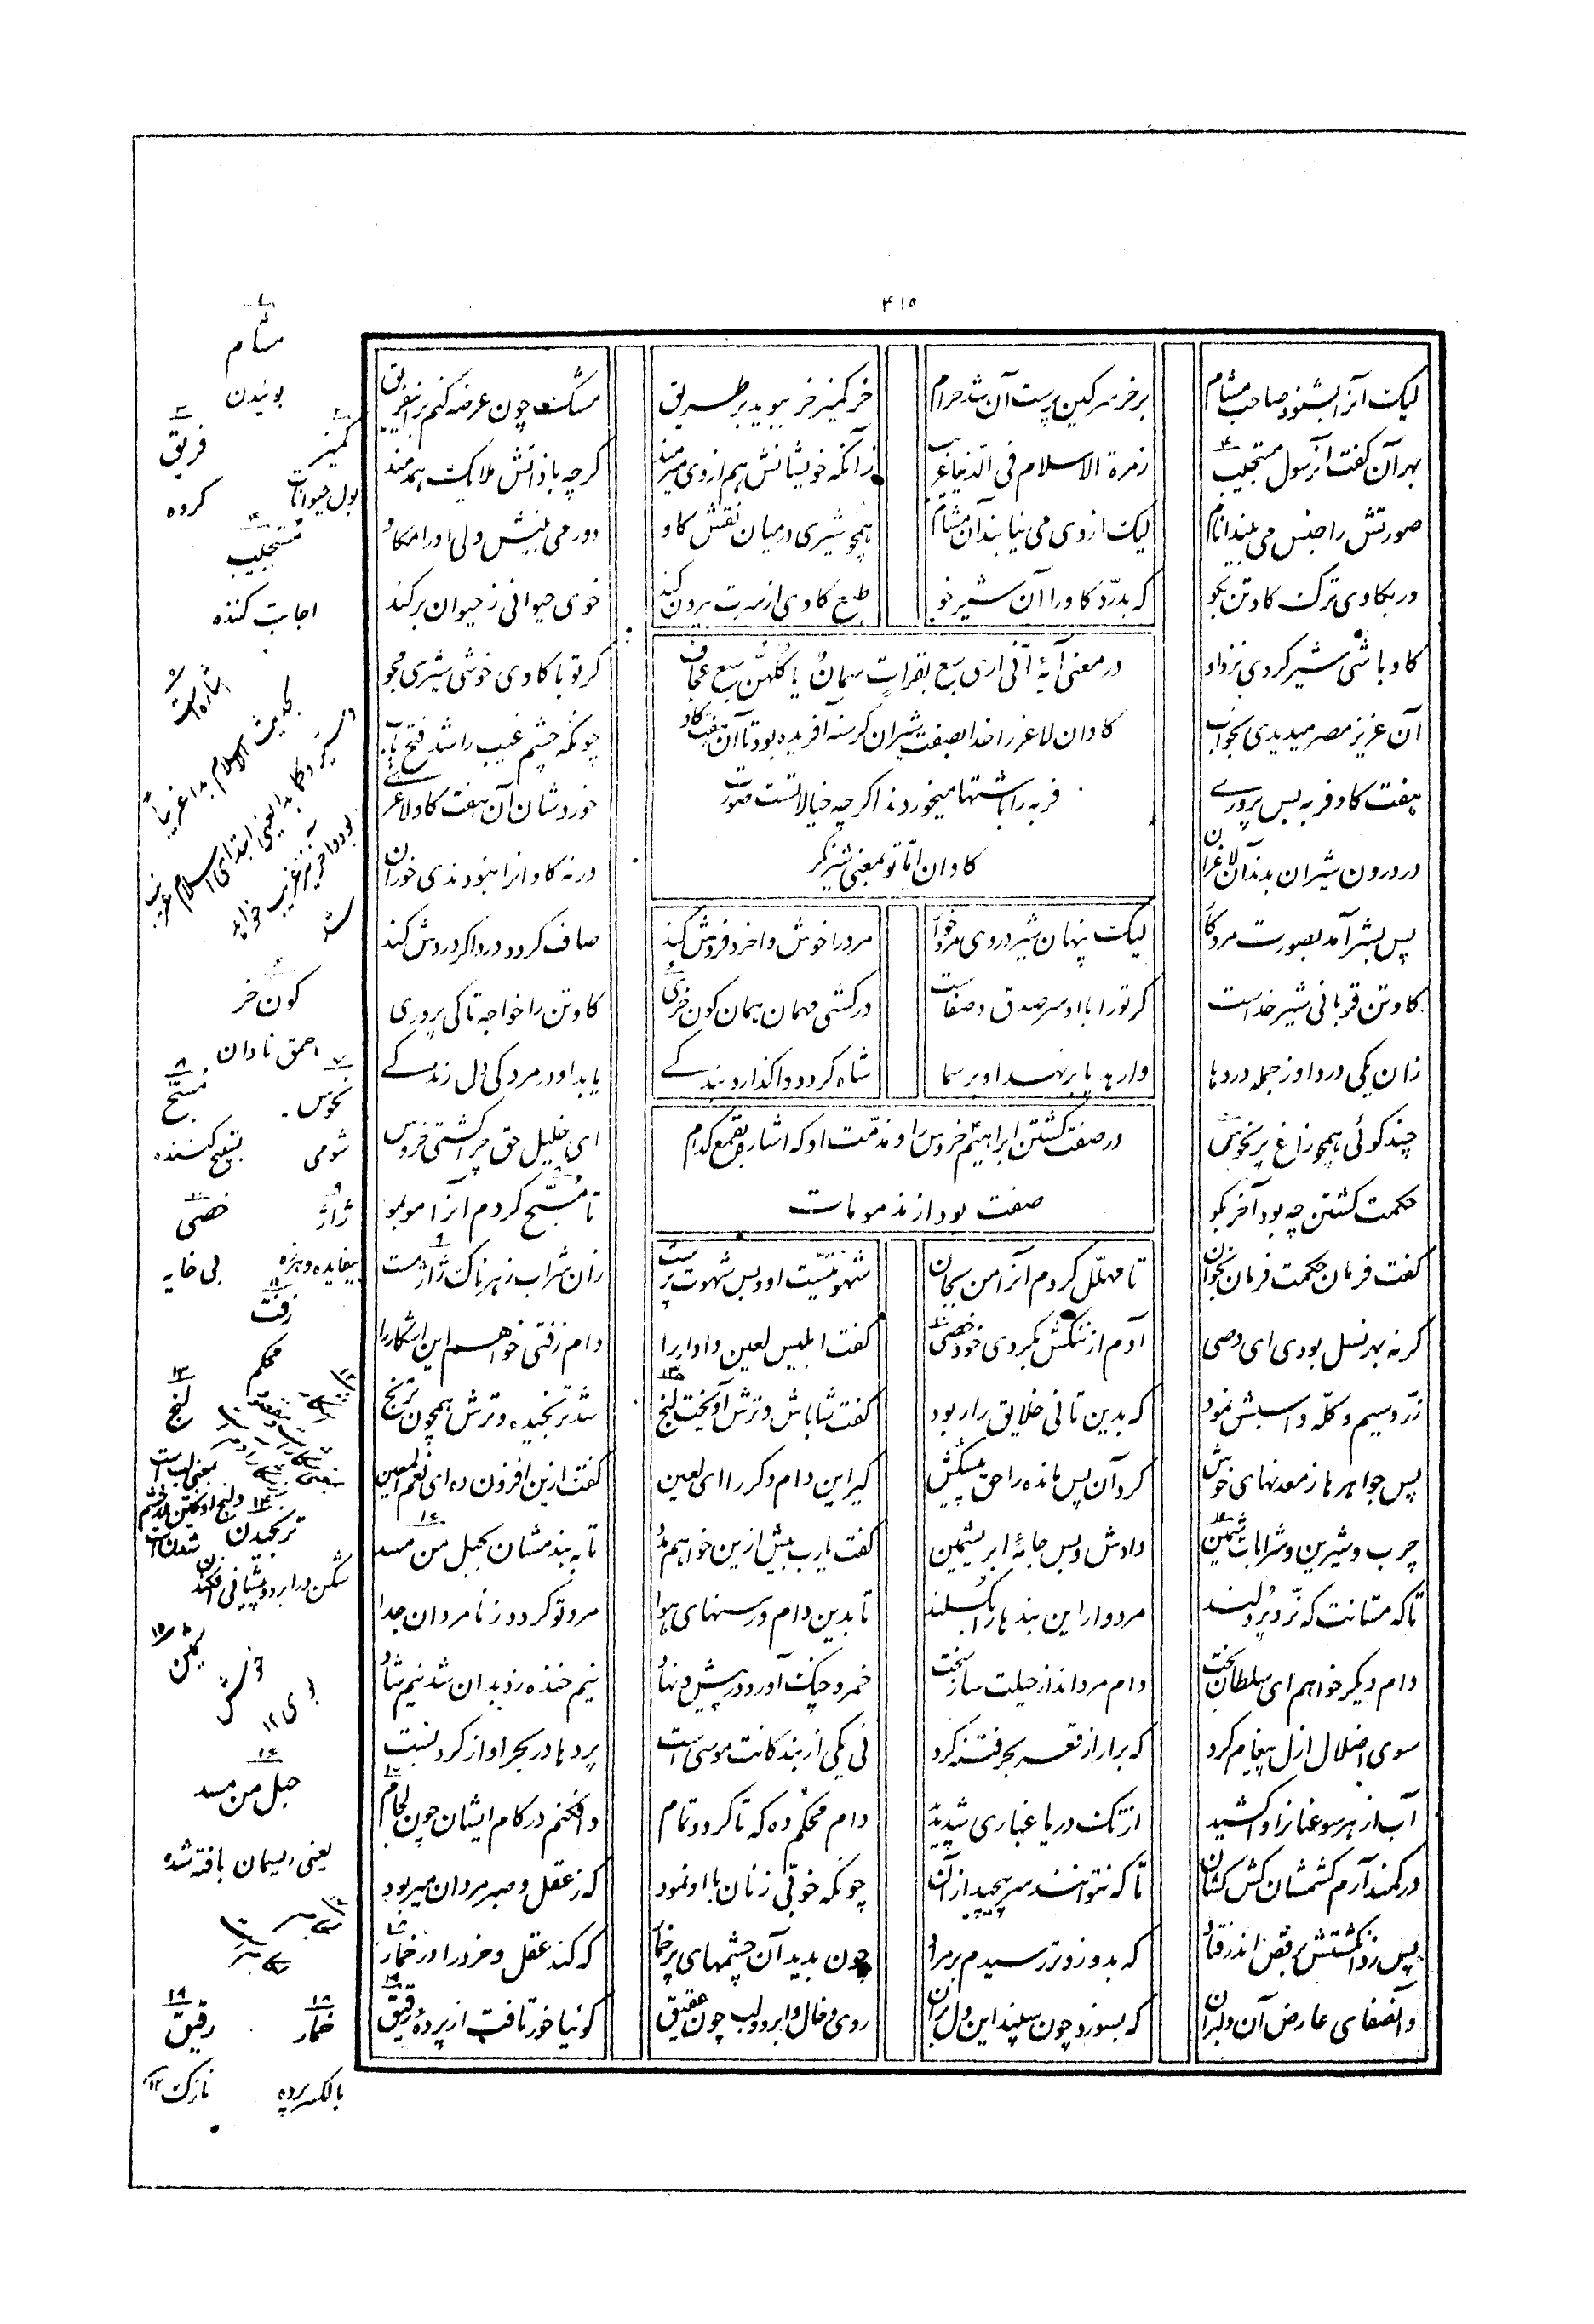 ۴۱۵
لیک آنرا بشنود صاحب مشام
بر خر سرگین پرست آن شد حرام
خر کمیز خر ببوید بر طریق
مشک چون عرضه کنم بر این فریق
بهر آن گفت آنرسول مستجیب
رمزة الاسلام فی الدنیا غریب
زآنکه خویشانش هم از وی میرمند
گرچه با ذاتش ملایک همدمند
صورتش را جنس می بیند انام
لیک از وی می نیابند آن مشام
همچو شیری در میان نقش گاو
دور می بینش ولی او را مکاو
در بکاوی ترک گاو تن بگو
که بدرّد گاو را آن شیر خو
طبع گاوی از سرت بیرون کند
خوی حیوانی ز حیوان بر کند
گاو باشی شیر گردی نزد او
گر تو با گاوی خوشی شیری مجو
در معنی آیهٔ انّی اری سبع بقرات سمان یأکلهنّ سبع عجاف
گاوان لاغر را خدا بصفت شیران گرسنه آفریده بود تا آن هفت گاو
فربه را باشتها میخوردند اگرچه خیالاتست صورت
گاوان امّا تو بمعنی شیر نگر
آن عزیز مصر میدیدی بخواب
چونکه چشم غیب را شد فتح باب
هفت گاو فربه بس پروری
خوردشان آن هفت گاو لاغری
در درون شیران بدند آن لاغران
ورنه گاوانرا نبودندی خوران
پس بشر آمد بصورت مرد کار
لیک پنهان شیر در وی مردخوار
مرد را خوش واخورد فردش کند
صاف گردد درد اگر دردش کند
گاو تن قربانی شیر خداست
گر تو را با او سر صدق و صفاست
در کشی مهمان همان کون خری
گاو تن را خواجه تا کی پروری
زان یکی درد او ز جمله دردها
وارهد پا بر نهد او بر سما
شاه گردد واگذارد بندگی
یابد او در مردگی دل زندگی
در صفت کشتن ابراهیم خروس را و مذمّت او که اشاره بقمع کدام
صفت بود از مذمومات
چند گوئی همچو زاغ پر نحوس
ای خلیل حق چرا کشتی خروس
حکمت کشتن چه بود آخر بگو
تا مسبّح گردم آنرا مو بمو
گفت فرمان حکمت فرمان بخوان
تا مهلّل گردم آنرا من بجان
شهوتیست او و بس شهوت پرست
زان شراب زهرناک ژاژ مست
گرنه بهر نسل بودی ای وصی
آدم از ننگش بکردی خود خصی
گفت ابلیس لعین دادار را
دام زفتی خواهم این اشکار را
زرّ و سیم و گلّه و اسبش نمود
که بدین تانی خلایق را ربود
گفت شاباش و ترش آویخت لنج
شد ترنجیده و ترش همچون ترنج
پس جواهرها ز معدنهای خوش
کرد آن پس مانده را حق پیشکش
گیر این دام دگر را ای لعین
گفت ازین افزون ده ای نعم المعین
چرب و شیرین و شرابات ثمین
دادش و بس جامهٔ ابریشمین
گفت یارب بیش ازین خواهم مدد
تا به بندمشان بحبل من مسد
تا که مستانت که نرّ و پردلند
مردوار این بندها را بگسلند
تا بدین دام و رسنهای هوا
مرد تو گردد ز نامردان جدا
دام دیگر خواهم ای سلطان بخت
دام مرد انداز حیلت ساز سخت
خمر و چنگ آورد در پیش و نهاد
نیم خنده زد بدان شد نیم شاد
سوی اضلال ازل پیغام کرد
که برار از قعر بحر فتنه گرد
نی یکی از بندگانت موسی است
پردها در بحر او از گرد بست
آب از هر سو عنانرا واکشید
از تک دریا غباری شد پدید
دام محکم ده که تا گردد تمام
وافکنم در کام ایشان چون لجام
در کمند آرم کشمشان کش کشان
تا که نتوانند سر پیچید از آن
چونکه خوبی زنان با او نمود
که ز عقل و صبر مردان میربود
پس زد انگشتش برقص اندر فتاد
که بده زودتر رسیدم بر مراد
چون بدید آن چشمهای پر خمار
که کند عقل و خرد را در خمار
وآنصفای عارض آن دلبران
که بسوزد چون سپند این دل بران
روی و خال و ابرو و لب چون عقیق
گوئیا خور تافت از پردهٔ رقیق
مشام
بوئیدن
کمیز
بول حیوانات
فریق
گروه
مستجیب
اجابت کننده
اشاره است
بحدیث الاسلام بدا غریباً
کون خر
احمق نادان
نحوس
شومی
مسبّح
تسبیح کننده
ژاژ
بیفایده و هرزه
خصی
بی خایه
زفت
محکم
لنج
ترنجیدن
شکن در ابرو و پیشانی افکندن
ثمین
حبل من مسد
یعنی ریسمان بافته شده
خمار
بالکسر پرده
رقیق
نازک ۱۲